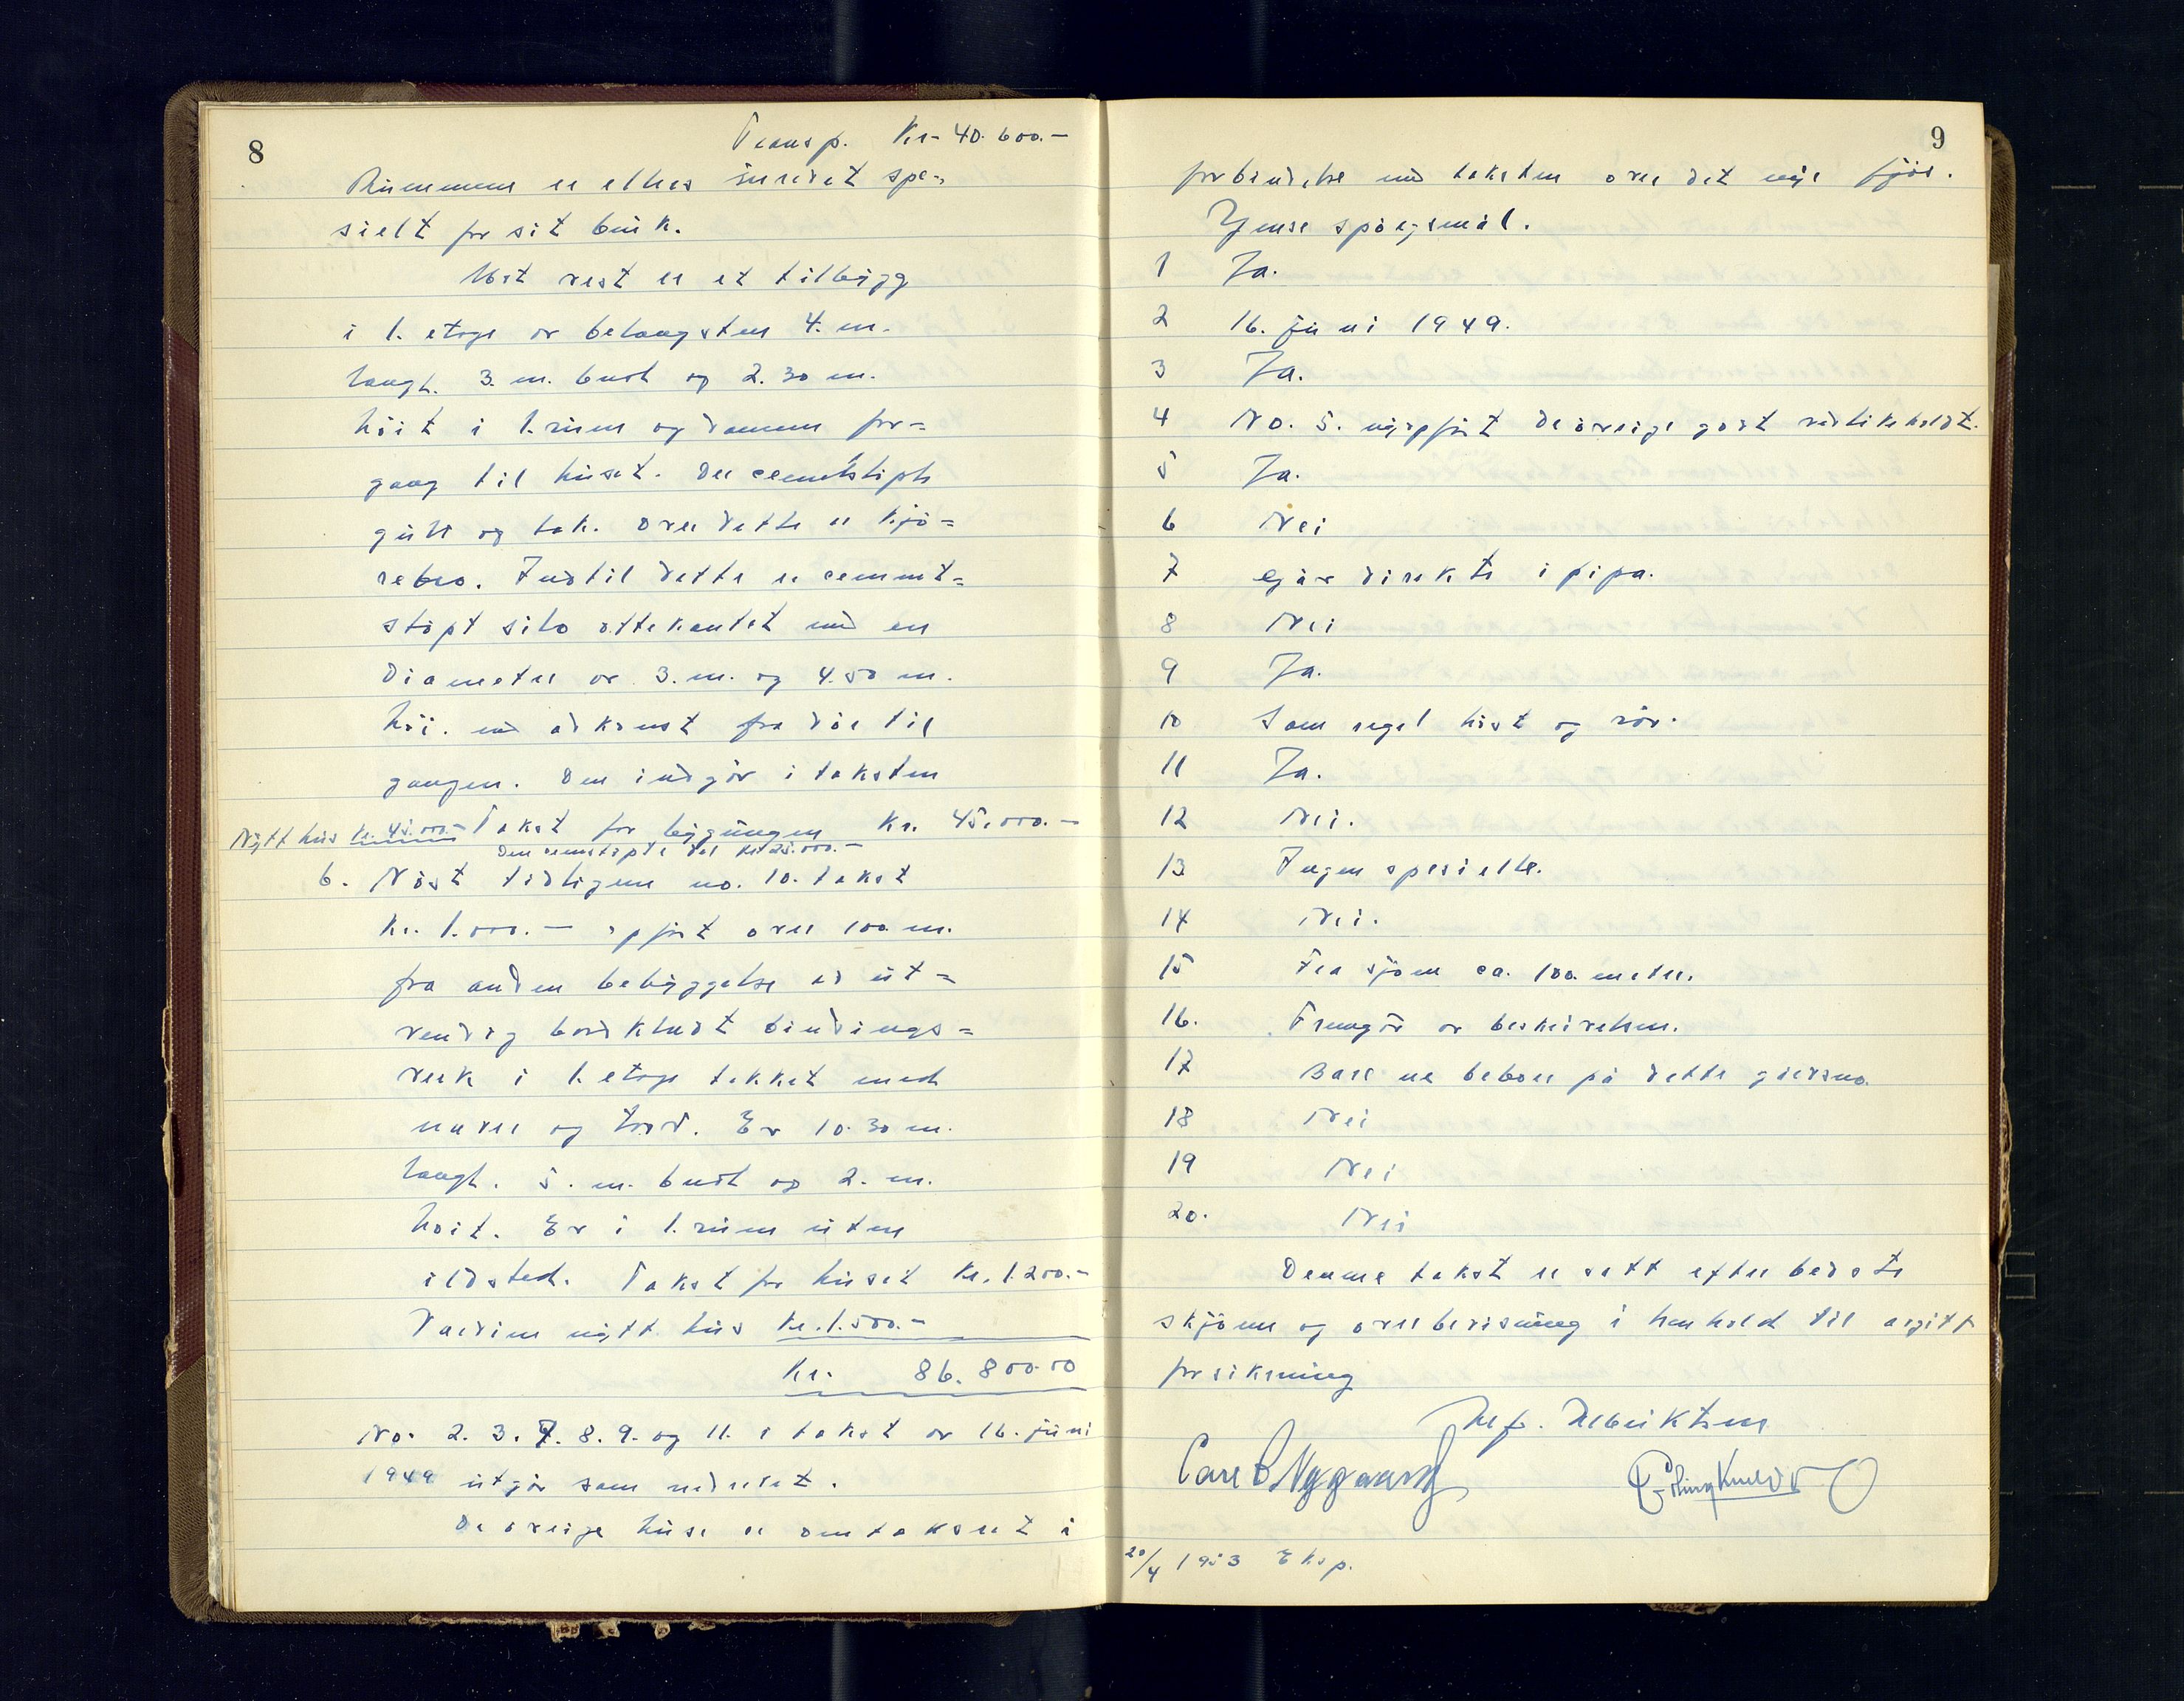 8
Transp. Kr- 40.600.-
Rummene er ellers inredet spe-
sielt for sit bruk.
Mot vest er et tilbygg
i 1. etage av betongsten 4. m.
langt. 3. m. bredt og 2.30 m.
höit i 1. rum og danner for=
gang til huset. Der cementstöpte
gulv og tak. Over dette er kjö=
rebro. Indtil dette er cemmt=
stöpt silo ottekantet med en
diameter av 3. m. og 4.50 m.
höi. med adkomst fra dör til
gangen. Den indgår i taksten
Nytt hus Kr. 45.000.- Takst for bygningen Kr. 45.000.-
Den cemstöpte del Kr. 25.000.-
6. Nöst tidligere no. 10. takst
Kr. 1.000.- opfört over 100 m.
fra anden bebyggelse er ut=
vendig bordkledt bindings=
verk i 1. etage tekket med
never og torv. Er 10.30 m.
langt. 5. m. bredt og 2. m.
höit. Er i 1. rum uten
ildsted. Takst for huset Kr. 1.200.-
Verdien nytt hus Kr. 1.500.-
Kr. 86.800.00
No. 2. 3. 7. 8. 9. og 11. i takst av 16. juni
1949 utgår som nedrevet.
De övrige huse er omtaksert i
9
forbindelse med taksten over det nye fjös.
Ymse spörgsmål.
1 Ja.
2 16. juni 1949.
3 Ja.
4 No. 5. nyopfört de övrige godt vedlikeholdt.
5 Ja.
6 Nei
7 Går direkte i pipa.
8 Nei
9 Ja.
10 Som regel höst og vår.
11 Ja.
12 Nei.
13 Ingen spesielle.
14 Nei.
15 Fra sjöen ca. 100. meter.
16. Fremgår av beskrivelsen.
17 Bare en beboer på dette gårdsno.
18 Nei
19 Nei
20. Nei
Denne takst er satt efter bedste
skjönn og overbevisning i henhold til avgitt
forsikring
Alf. Albriktsen
Carl B Nygaard
Erling
20/4 1953 Eksp.